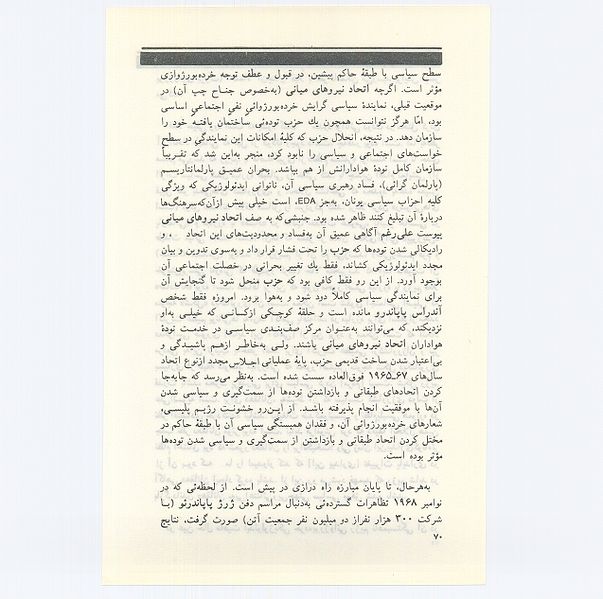 سطح سیاسی با طبقهٔ حاکم پیشین، در قبول و عطف توجه خرده‌بورژوازی
مؤثر است. اگرچه اتحاد نیروهای میانی (به‌خصوص جناح چپ آن) در
موقعیت قبلی، نمایندهٔ سیاسی گرایش خرده‌بورژوائی نفی اجتماعی اساسی
بود، امّا هرگز نتوانست همچون یك حزب توده‌ئی ساختمان یافتـه خود را
سازمان دهد. در نتیجه، انحلال حزب که کلیهٔ امکانات این نمایندگی در سطح
خواست‌های اجتماعی و سیاسی را نابود کرد، منجر به‌این شد که تقـریبـاً
سازمان کامل تودهٔ هوادارانش از هم بپاشد. بحران عمیـق پارلمانتاریسـم
(پارلمان گرائی)، فساد رهبری سیاسی آن، ناتوانی ایدئولوژیکی که ویژگی
کلیه احزاب سیاسی یونان، به‌جز EDA، است خیلی پیش ازآن‌که‌سرهنگ‌ها
دربارهٔ آن تبلیغ کنند ظاهر شده بود. جنبشی‌که به صف اتحاد نیروهای میانی
پیوست علی‌رغم آگاهی عمیق آن به‌فساد و محدودیت‌های این اتحاد ، و
رادیکالی شدن توده‌ها که حزب را تحت فشار قرار داد و به‌سوی تدوین و بیان
مجدد ایدئولوژیکی کشاند، فقط یك تغییر بحرانی در خصلت اجتماعی آن
بوجود آورد. از این رو فقط کافی بود که حزب منحل شود تا گنجایش آن
برای نمایندگی سیاسی کاملاً دود شود و به‌هوا برود. امروزه فقط شخص
آندراس پاپاندرو مانده است و حلقهٔ کوچـکی ازکسـانـی که خیلـی به‌او
نزدیکند، که می‌توانند به‌عنـوان مرکز صف‌بنـدی سیاسـی در خدمـت تودهٔ
هواداران اتحاد نیروهای میانی باشند. ولـی به‌خاطـر ازهـم پاشیـدگـی و
بی‌اعتبار شدن ساخت قدیمی حزب، پایهٔ عملیاتی اجـلاس مجدد ازنوع اتحاد
سال‌های ۶۷ـ۱۹۶۵ فوق‌العاده سست شده است. به‌نظر می‌رسد که جابه‌جا
کردن اتحادهای طبقاتی و بازداشتن توده‌ها از سمت‌گیری و سیاسی شدن
آن‌ها با موفقیت انجام پذیرفته باشـد. از ایـن‌رو خشونـت رژیـم پلیسـی،
شعارهای خرده‌بورژوائی آن، و فقدان همبستگی سیاسی آن با طبقهٔ حاکم در
مختل کردن اتحاد طبقاتی و بازداشتن از سمت‌گیری و سیاسی شدن توده‌ها
مؤثر بوده است.
به‌هرحال، تا پایان مبارزه راه درازی در پیش است. از لحظه‌ئی که در
نوامبر ۱۹۶۸ تظاهرات گسترده‌ئی به‌دنبال مراسم دفن ژرژ پاپاندرئو (بـا
شرکت ۳۰۰ هزار نفراز دو میلیون نفر جمعیت آتن) صورت گرفت، نتایج
۷۰